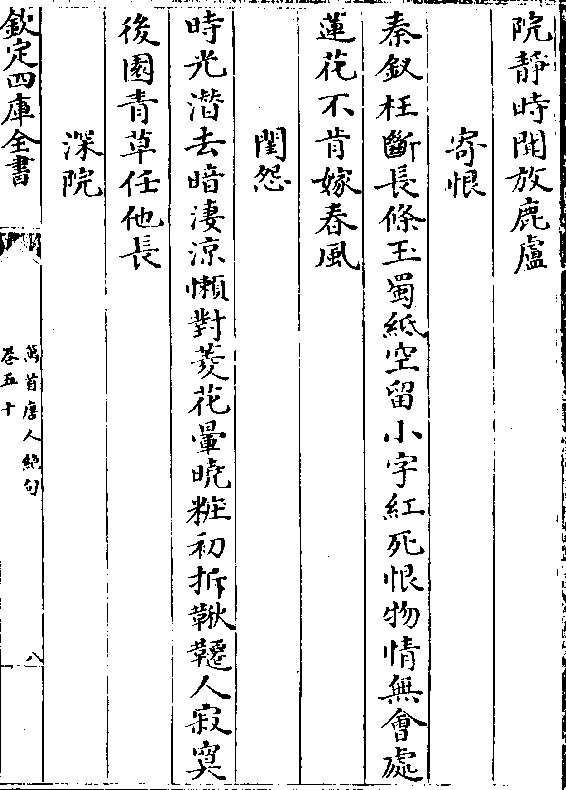 院靜時聞放鹿盧
寄恨
秦釵枉斷長條玉蜀紙空留小字紅死恨物情無會處
蓮花不肯嫁春風
閨怨
時光潛去暗淒涼懶對菱花暈曉粧初拆鞦韆人寂寞
後園青草任他長
深院
欽定四庫全書
萬首唐人絕句
卷五十
八